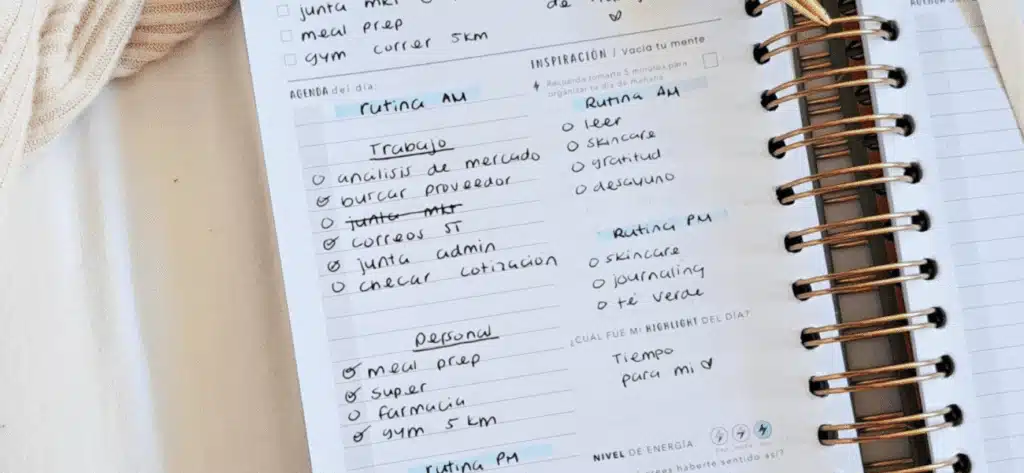 junta mkt
meal prep
gym correr 5km
de
♡
AGENDA del día:
rutina AM
Trabajo
análisis de mercado
buscar proveedor
junta mkt
correos ST
junta admin
checar cotización
Personal
meal prep
super
farmacia
gym 5 km
rutina PM
INSPIRACIÓN / vacía tu mente
Recuerda tomarte 5 minutos para
organizar tu día de mañana
Rutina AM
leer
skincare
gratitud
desayuno
Rutina PM
skincare
journaling
té verde
¿CUÁL FUE MI HIGHLIGHT DEL DÍA?
Tiempo
para mi ♡
NIVEL DE ENERGÍA
haberte sentido así?
AGENDA